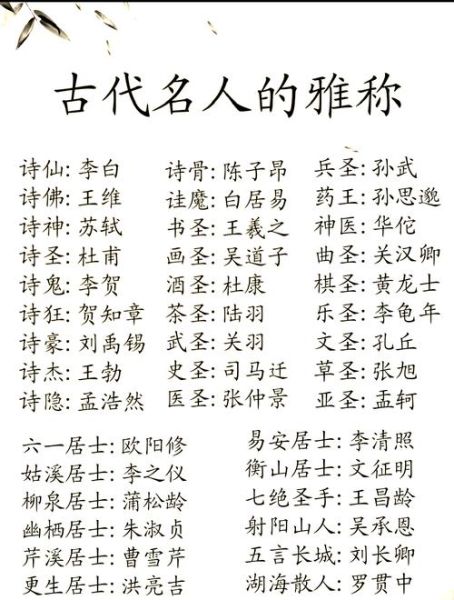 古代名人的雅称
诗仙: 李白 诗骨: 陈子昂 兵圣: 孙武
诗佛: 王维 诖魔: 白居易 药王: 孙思邈
诗神: 苏轼 书圣: 王羲之 神医: 华佗
诗圣: 杜甫 画圣: 吴道子 曲圣: 关汉卿
诗鬼: 李贺 酒圣: 杜康 棋圣: 黄龙士
诗狂: 贺知章 茶圣: 陆羽 乐圣: 李龟年
诗豪: 刘禹锡 武圣: 关羽 文圣: 孔丘
诗杰: 王勃 史圣: 司马迁 草圣: 张旭
诗隐: 孟浩然 医圣: 张仲景 亚圣: 孟轲
六一居士: 欧阳修 易安居士: 李清照
姑溪居士: 李之仪 衡山居士: 文征明
柳泉居士: 蒲松龄 七绝圣手: 王昌龄
幽栖居士: 朱淑贞 射阳山人: 吴承恩
芹溪居士: 曹雪芹 五言长城: 刘长卿
更生居士: 洪亮吉 湖海散人: 罗贯中